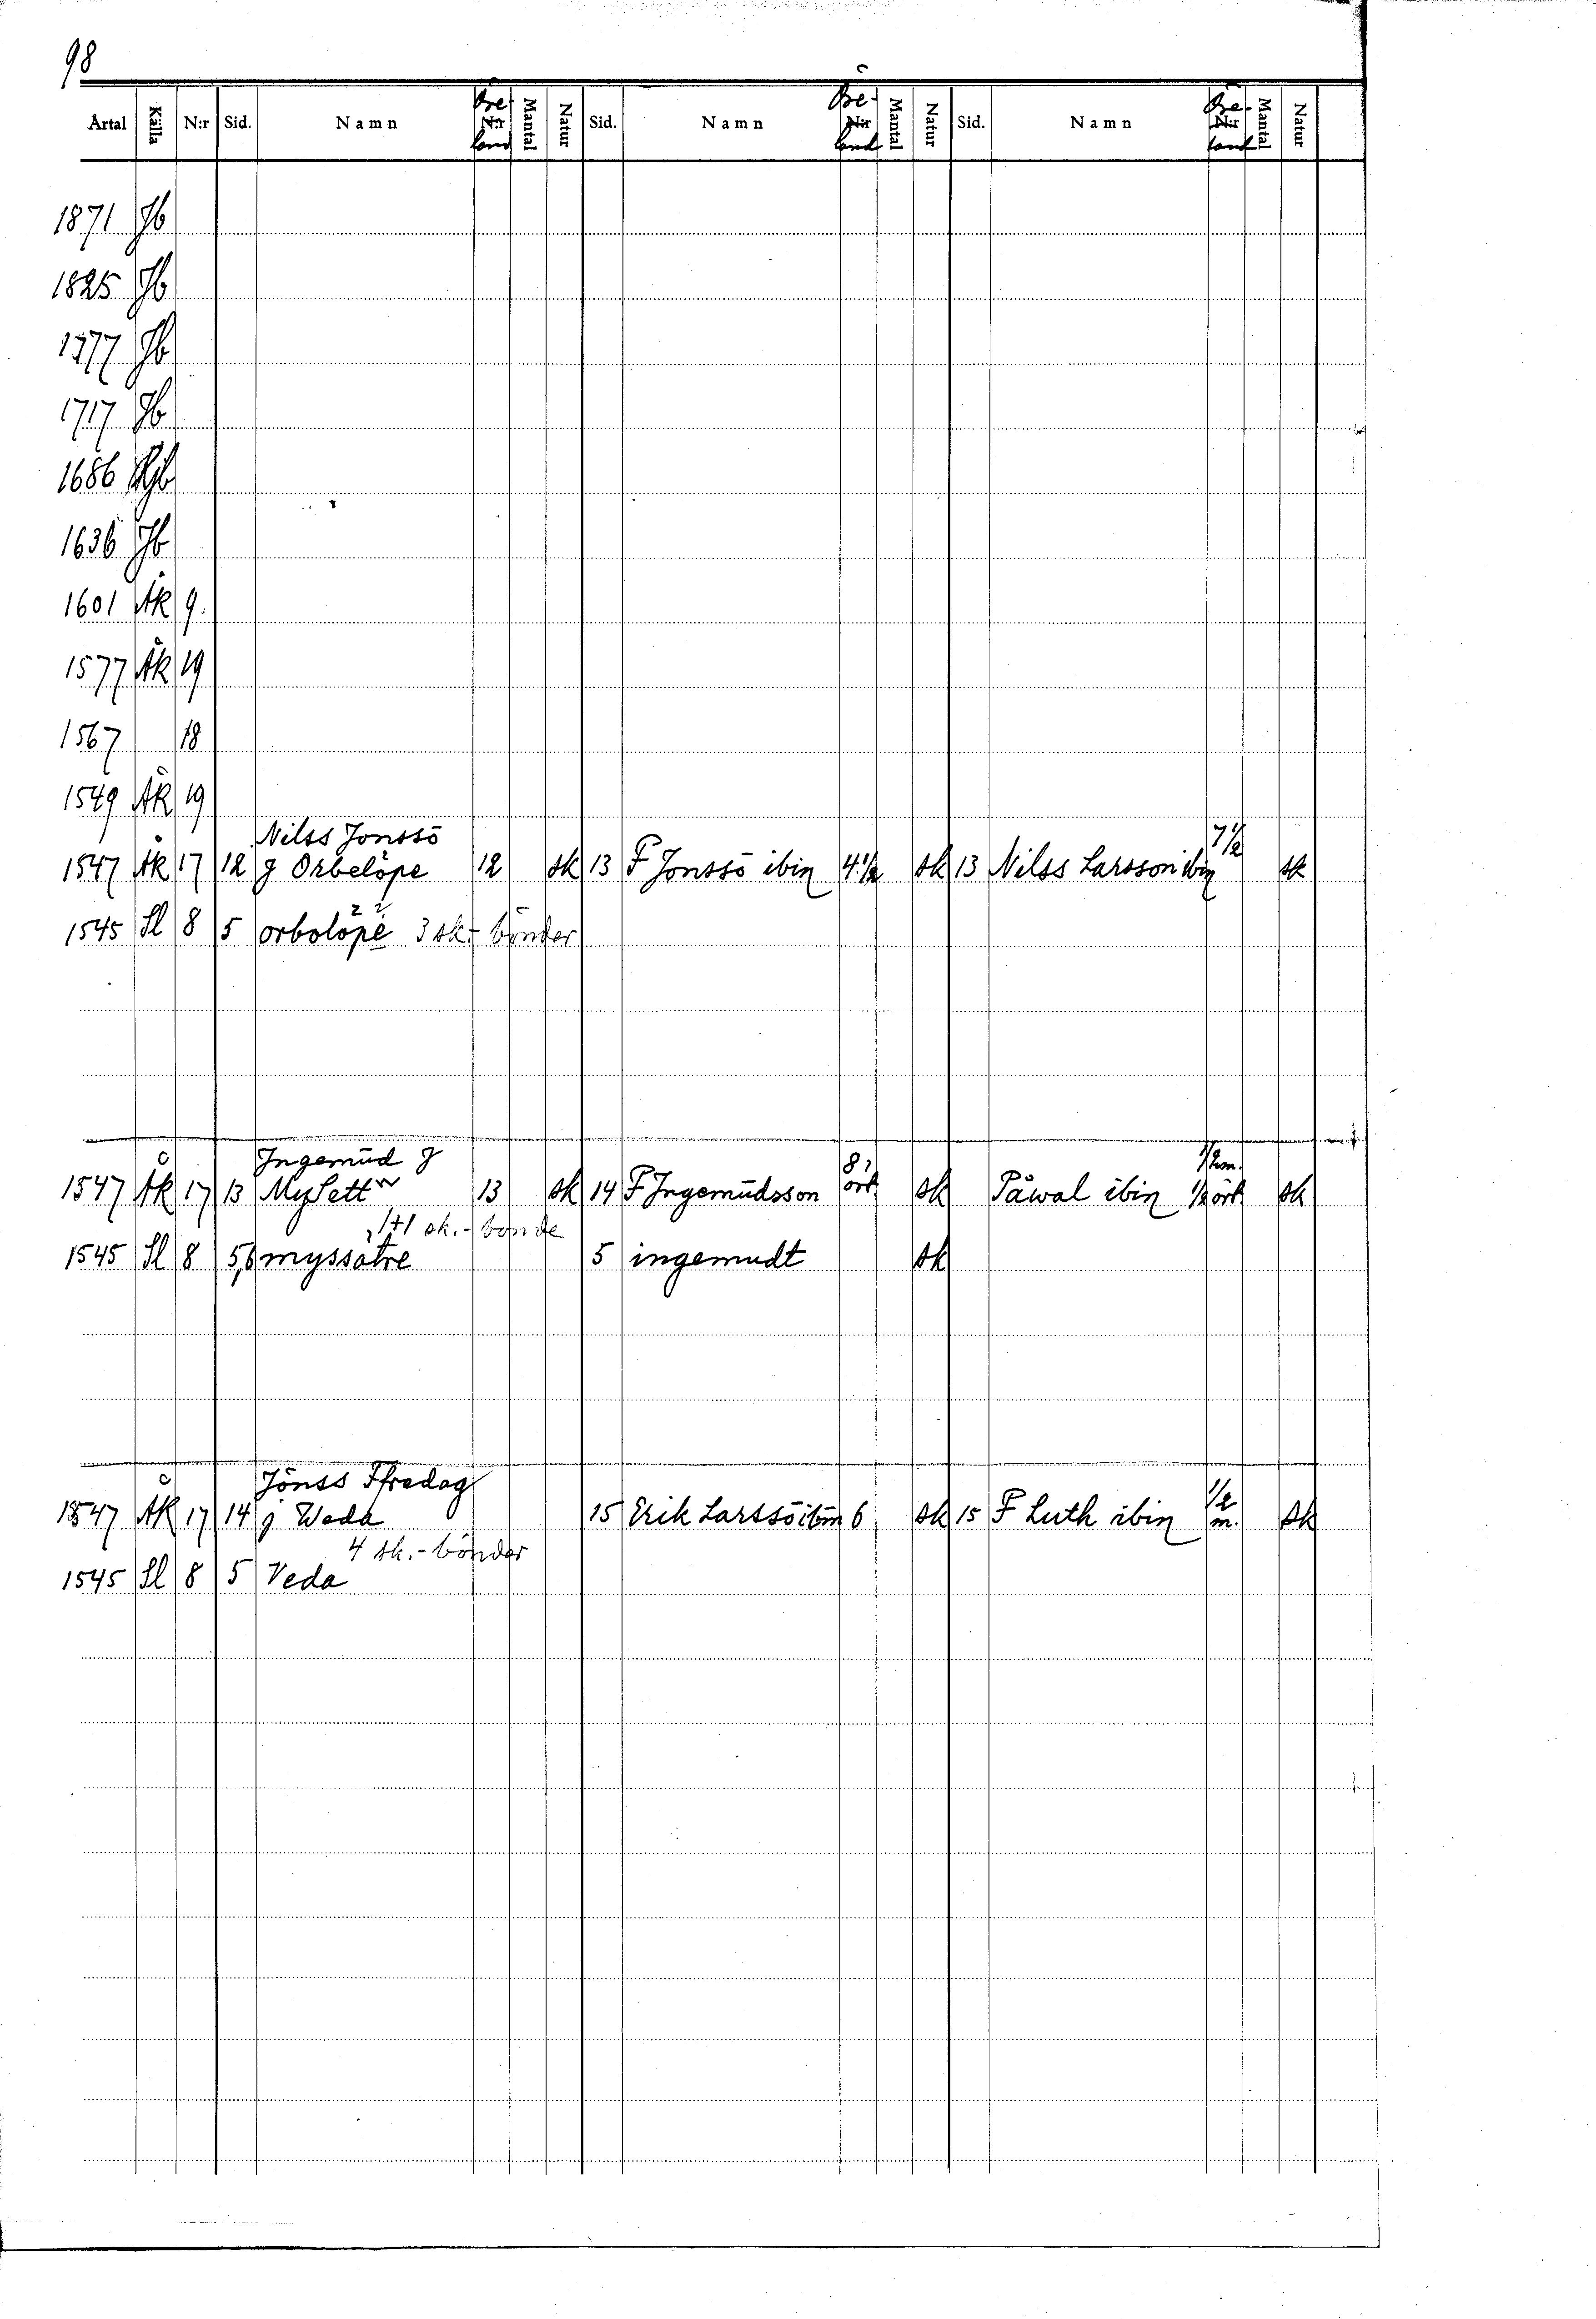 98
Årtal Källa N:r Sid. Namn Öresland N:r Mantal Natur Sid. Namn Öresland N:r Mantal Natur Sid. Namn Öresland N:r Mantal Natur
1871 Jb
1825 Jb
1777 Jb
1717 Jb
1686 Rjb
1636 Jb
1601 Åk 9.
1577 Åk 19
1567 18
1549 Åk 19
Nilss Jonssō 7 1/2
1547 Åk 17 12 J Orbelöpe 12 sk 13 F Jonssō ibin 4 1/2 sk 13 Nilss Larsson ibin sk
1545 Sl 8 5 orbolöpe 3 sk.- bönder
Ingemūd J 8? 1/2 m.
1547 Åk 17 13 MySett 13 sk 14 F Ingemūdsson ört sk Påwal ibin 1/2 ört sk
1+1 sk.-bonde
1545 Sl 8 5,6 myssatre 5 ingemudt sk
Jönss Ffredag 1/2
1547 Åk 17 14 j Weda 15 Erik Larssō ibin 6 sk 15 F Luth ibin m. sk
4 sk.-bönder
1545 Sl 8 5 Veda